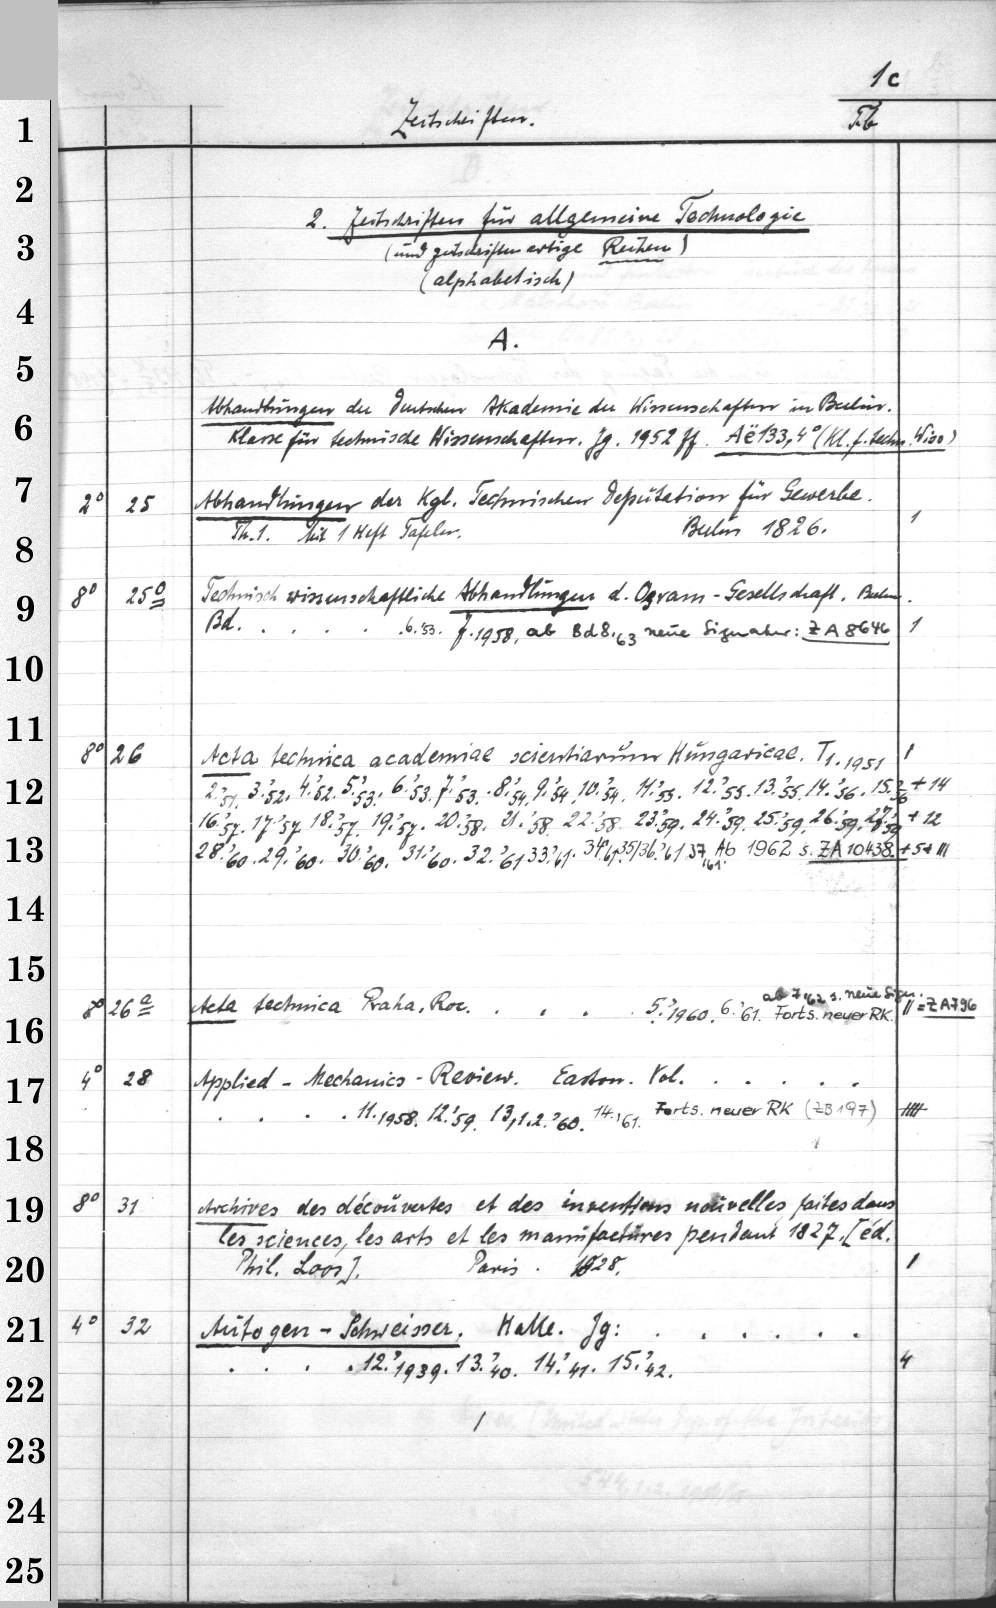 1c
Zeitschriften.
Tb
1
2
2. Zeitschriften für allgemeine Technologie
3
(und zeitschriftenartige Reihen)
(alphabetisch)
4
A.
5
Abhandlungen der Deutschen Akademie der Wissenschaften in Berlin.
6
Klasse für technische Wissenschaften. Jg. 1952 ff. Aë 133, 4° (Kl. f. techn. Wiss)
7
2° 25 Abhandlungen der Kgl. Technischen Deputation für Gewerbe.
Th. 1. Mit 1 Heft Tafeln. Berlin 1826. 1
8
8° 25 Technisch wissenschaftliche Abhandlungen d. Osram-Gesellschaft. Berlin.
9
Bd. . . . . 6.'53. 7.1958, ab Bd 8.'63 neue Signatur: ZA 8646 1
10
11
8° 26 Acta technica academiae scientiarum Hungaricae. T 1.1951 1
12
2.'51, 3.'52, 4.'52. 5.'53, 6.'53, 7.'53. 8.'54, 9.'54, 10.'54. 11.'55. 12.'55. 13.'55. 14.'56. 15. + 14
16.'57. 17.'57 18.'57. 19.'57. 20.'58. 21.'58 22.'58. 23.'59. 24.'59. 25.'59, 26.'59, 27.'59 + 12
13
28.'60. 29.'60. 30.'60. 31.'60. 32.'61 33.'61. 34.'61. 35/36.'61 37.'61. Ab 1962 s. ZA 10438. + 5 + III
14
15
ab 7.'62 s. neue Sign.
8° 26 a Acta technica Praha, Roc. . . . . 5.'1960. 6.'61. Forts. neuer RK. II = ZA 796
16
4° 28 Applied-Mechanics-Review. Easton. Vol. . . . . .
17
. . . . 11.1958. 12.'59. 13,1.2.'60. 14.'61. Forts. neuer RK (ZB 197) IIII
18
19
8° 31 Archives des découvertes et des inventions nouvelles faites dans
les sciences, les arts et les manufactures pendant 1827. [éd.
20
Phil. Loos]. Paris. 1828. 1
21
4° 32 Autogen-Schweisser. Halle. Jg: . . . . . .
. . . . 12.'1939. 13.'40. 14.'41. 15.'42. 4
22
23
24
25